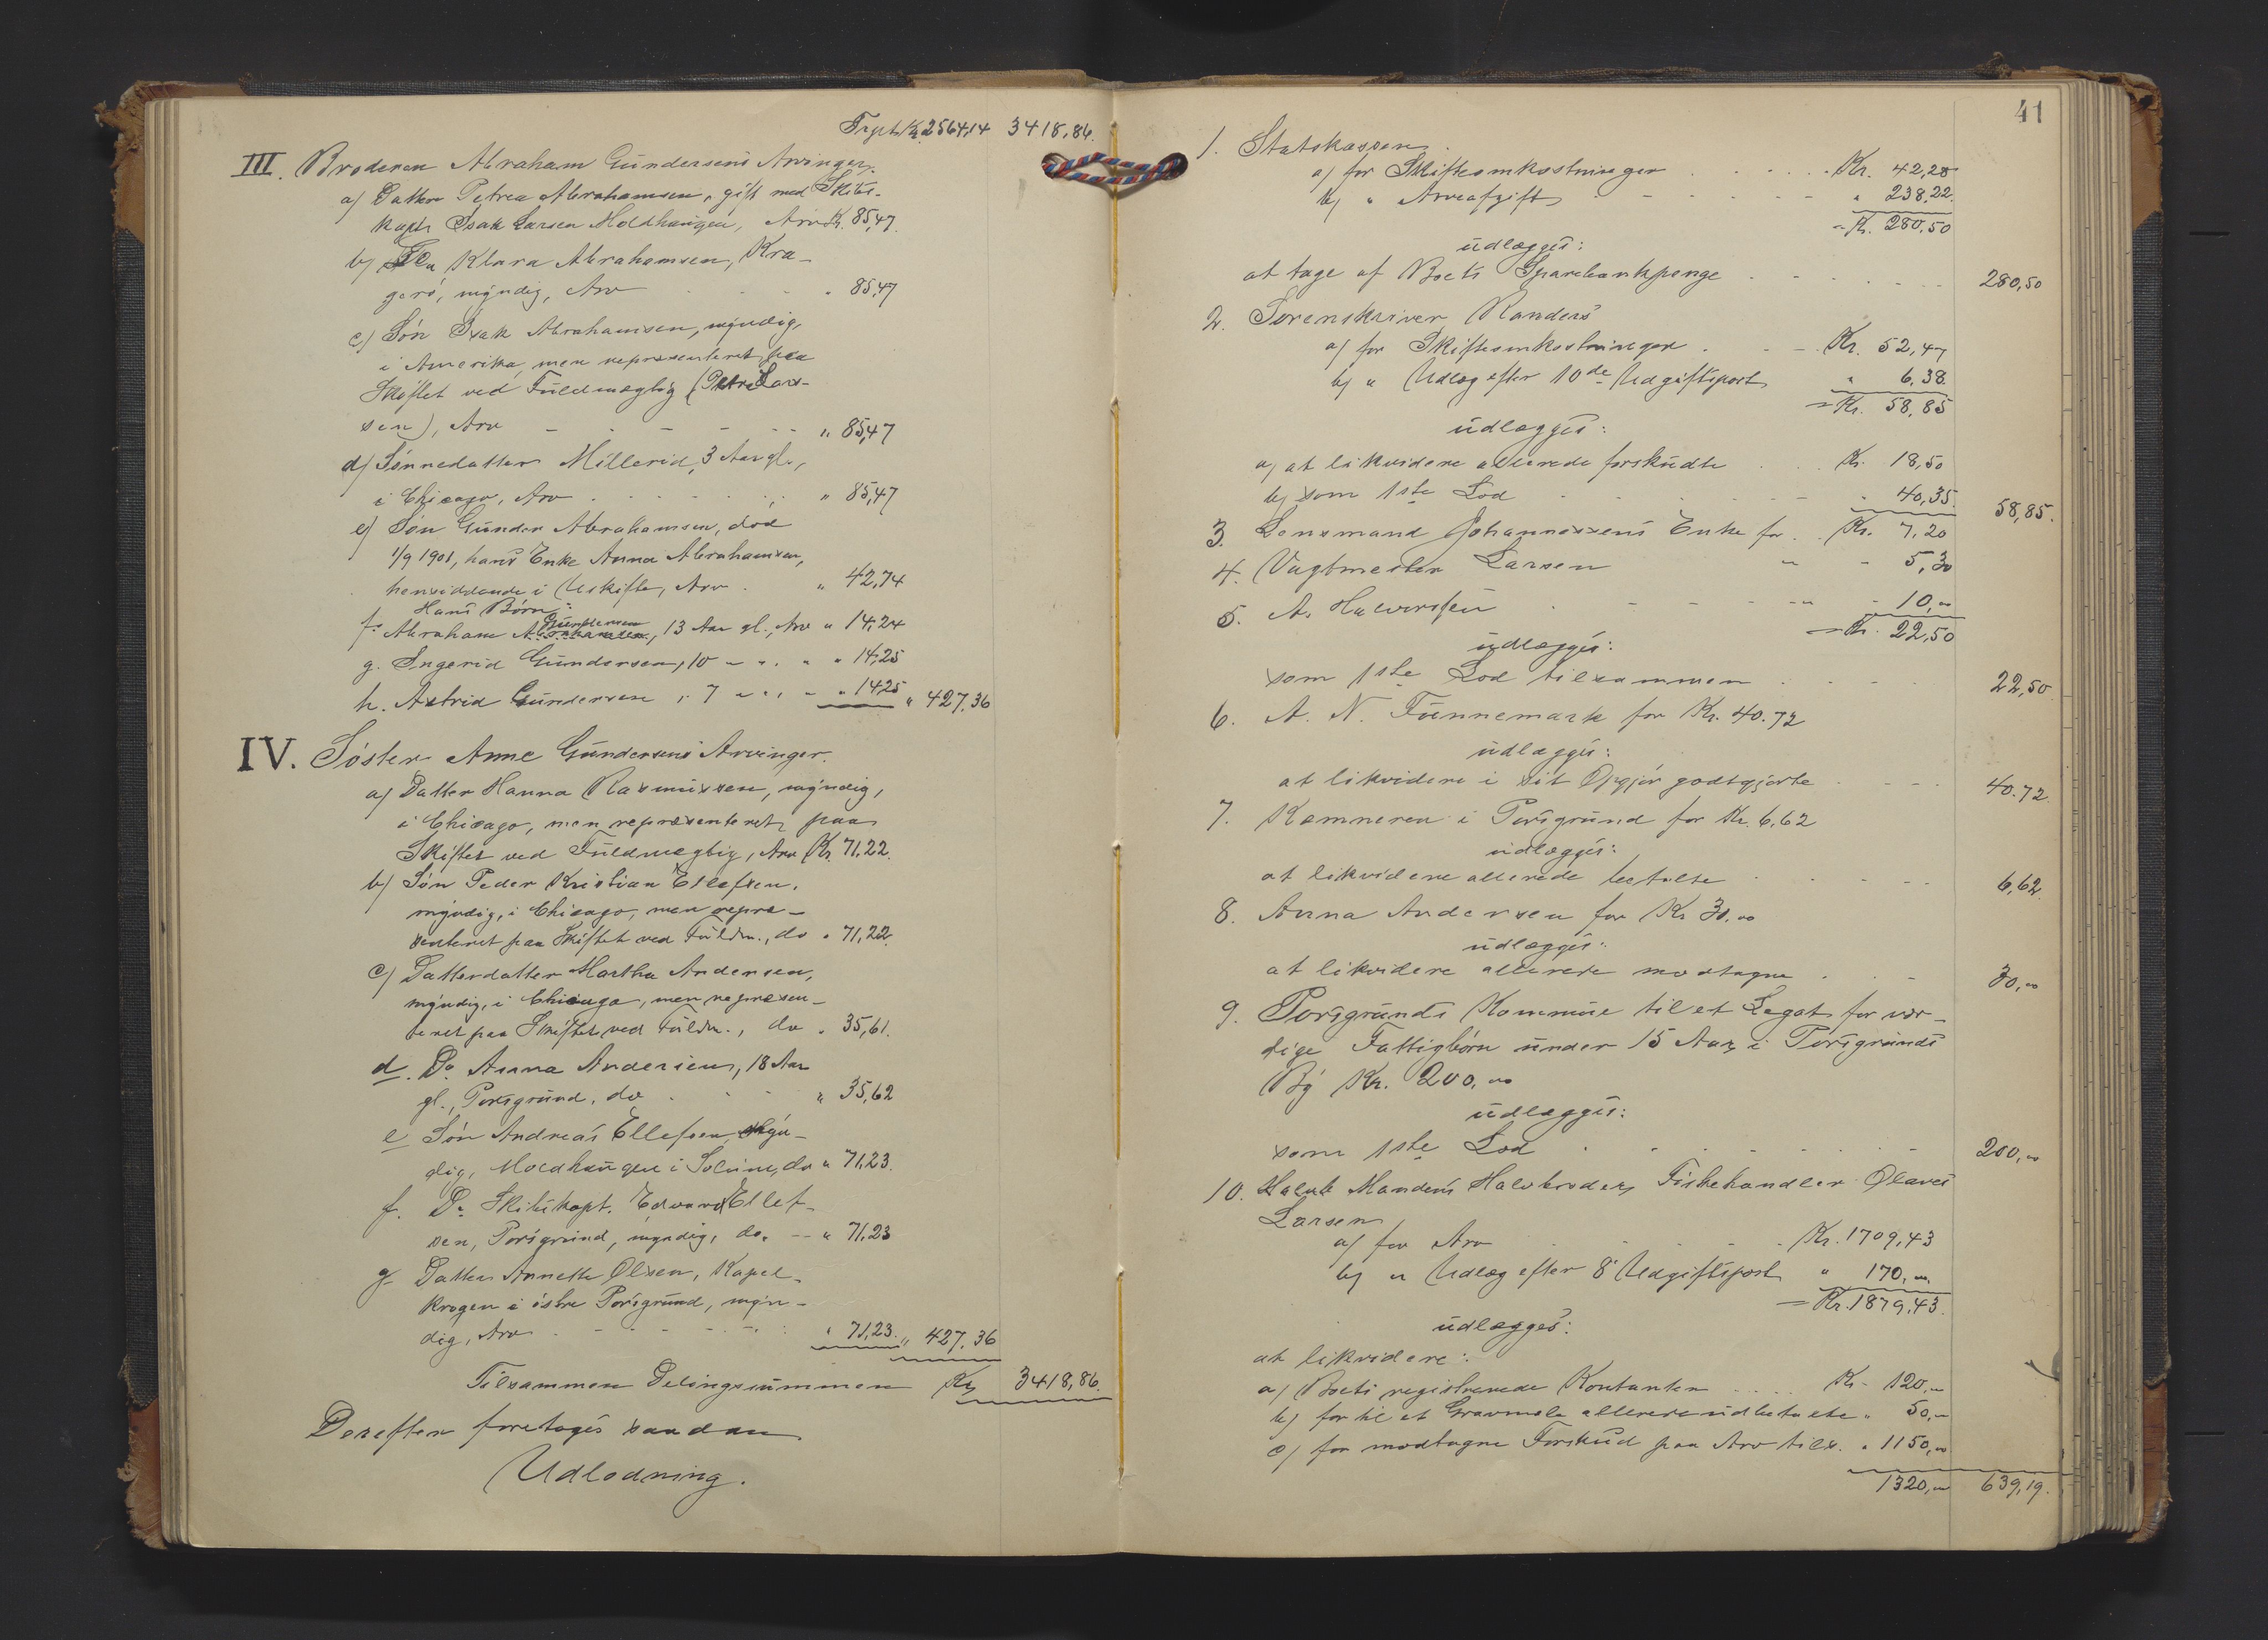 Trspt. Kr. 2564,14 3418,86.
III. Broderen Abraham Gundersens Arvinger.
a) Datter Petrea Abrahamsen, gift med Skibs-
kapt. Isak Larsen Moldhaugen, Arv Kr. 85,47.
b) Do Klara Abrahamsen, Kra-
gerö, myndig, Arv " 85,47
c) Sön Isak Abrahamsen, myndig,
i Amerika, men repræsenteret paa
Skiftet ved Fuldmægtig (Petre Lar-
sen), Arv " 85,47
d) Sönnedatter Millerid, 3 Aar gl.,
i Chicago, Arv " 85,47
e) Sön Gunder Abrahamsen, död
1/9 1901, hans Enke Anna Abrahamsen,
hensiddende i Uskifte, Arv " 42,74
Hans Börn:
f. Abraham Abrahamsen Gundersen, 13 Aar gl., Arv " 14,24
g. Ingerid Gundersen, 10 " " " " 14,25
h. Astrid Gundersen, 7 " " " " 14,25 " 427,36
IV. Söster Anne Gundersens Arvinger.
a) Datter Hanna Rasmussen, myndig,
i Chicago, men repræsenteret paa
Skiftet ved Fuldmægtig, Arv Kr. 71,22.
b) Sön Peder Kristian Ellefsen,
myndig, i Chicago, men repræ-
senteret paa Skiftet ved Fuldm., do " 71,22.
c) Datterdatter Martha Andersen,
myndig, i Chicago, men repræsen-
teret paa Skiftet ved Fuldm., do " 35,61.
d. Do Anna Andersen, 18 Aar
gl., Porsgrund, do " 35,62
e Sön Andreas Ellefsen, myn-
dig, Moldhaugen i Solum, do " 71,23.
f. Do Skibskapt. Edvard Ellef-
sen, Porsgrund, myndig, do. " 71,23
g. Datter Annette Olsen, Kapel-
krogen i östre Porsgrund, myn-
dig, Arv " 71,23. " 427,36
Tilsammen Delingssummen Kr. 3418,86.
Derefter foretoges saadan
Udlodning.
41
1. Statskassen.
a) for Skifteomkostninger Kr. 42,28
b) " Arveafgift " 238,22.
= Kr. 280,50
udlægges:
at tage af Boets Sparebankpenge 280,50
2. Sorenskriver Randers
a) for Skifteomkostninger Kr. 52,47
b) " Udlæg efter 10de Udgiftspost " 6,38.
= Kr. 58,85
udlægges:
a) at likvidere allerede forskudte Kr. 18,50
b) som 1ste Lod " 40,35. 58,85.
3. Lensmand Johannessens Enke for Kr. 7,20
4. Vagtmester Larsen " " 5,30
5. A. Halvorsen " " 10,00
= Kr. 22,50
udlægges:
som 1ste Lod tilsammen 22,50
6. A. N. Funnemark for Kr. 40.72
udlægges:
at likvidere i sit Opgjör godtgjorte 40.72.
7. Kemneren i Porsgrund for Kr. 6,62
udlægges:
at likvidere allerede betalte 6,62.
8. Anna Andersen for Kr 30.00
udlægges:
at likvidere allerede modtagne 30,00
9. Porsgrunds Kommune til et Legat for vær-
dige Fattigbörn under 15 Aar i Porsgrunds
By Kr. 200,00
udlægges:
som 1ste Lod 200,00
10. Salub Mandens Halvbroder, Fiskehandler Olaves
Larsen
a) for Arv Kr. 1709,43
b) " Udlæg efter 8de Udgiftspost " 170,00.
= Kr. 1879,43.
udlægges:
at likvidere:
a) Boets registrerede Kontanter Kr. 120,00
b) for til et Gravmæle allerede udbetalte " 50,00
c) for modtagne Forskud paa Arv tils. " 1150,00
1320,00 639,19.